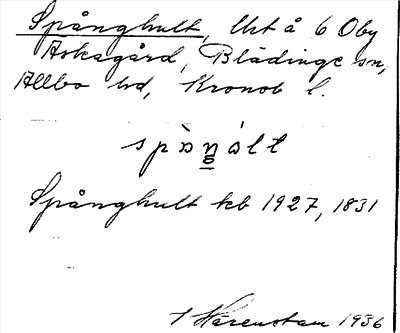 Spånghult, Urt å 6 Oby
Askagård, Blädinge sn,
Allbo hd, Kronob l.
spàŋált
Spånghult kb 1927, 1831
Härenstam 1936